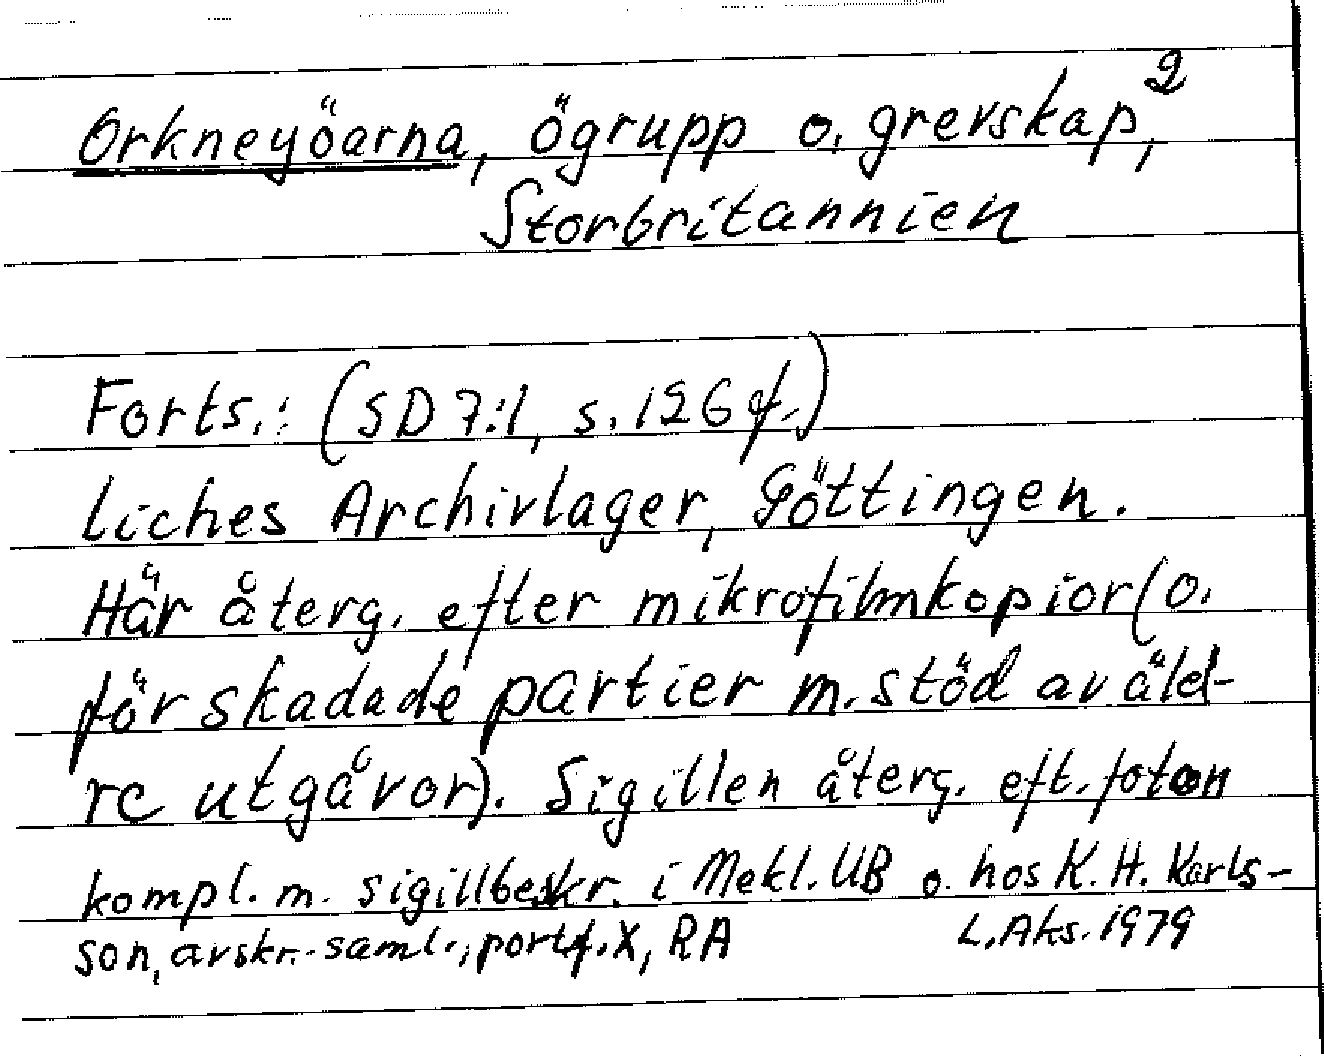 Orkneyöarna, ögrupp o. grevskap, 2
Storbritannien
Forts.: (SD 7:1, s. 126 f.)
liches Archivlager, Göttingen.
Här återg. efter mikrofilmkopior (o.
för skadade partier m. stöd av äld-
re utgåvor). Sigillen återg. eft. foton
kompl. m. sigillbeskr. i Mekl. UB o. hos K. H. Karls-
son, avskr.-saml., portf. X, RA
L. Aks. 1979